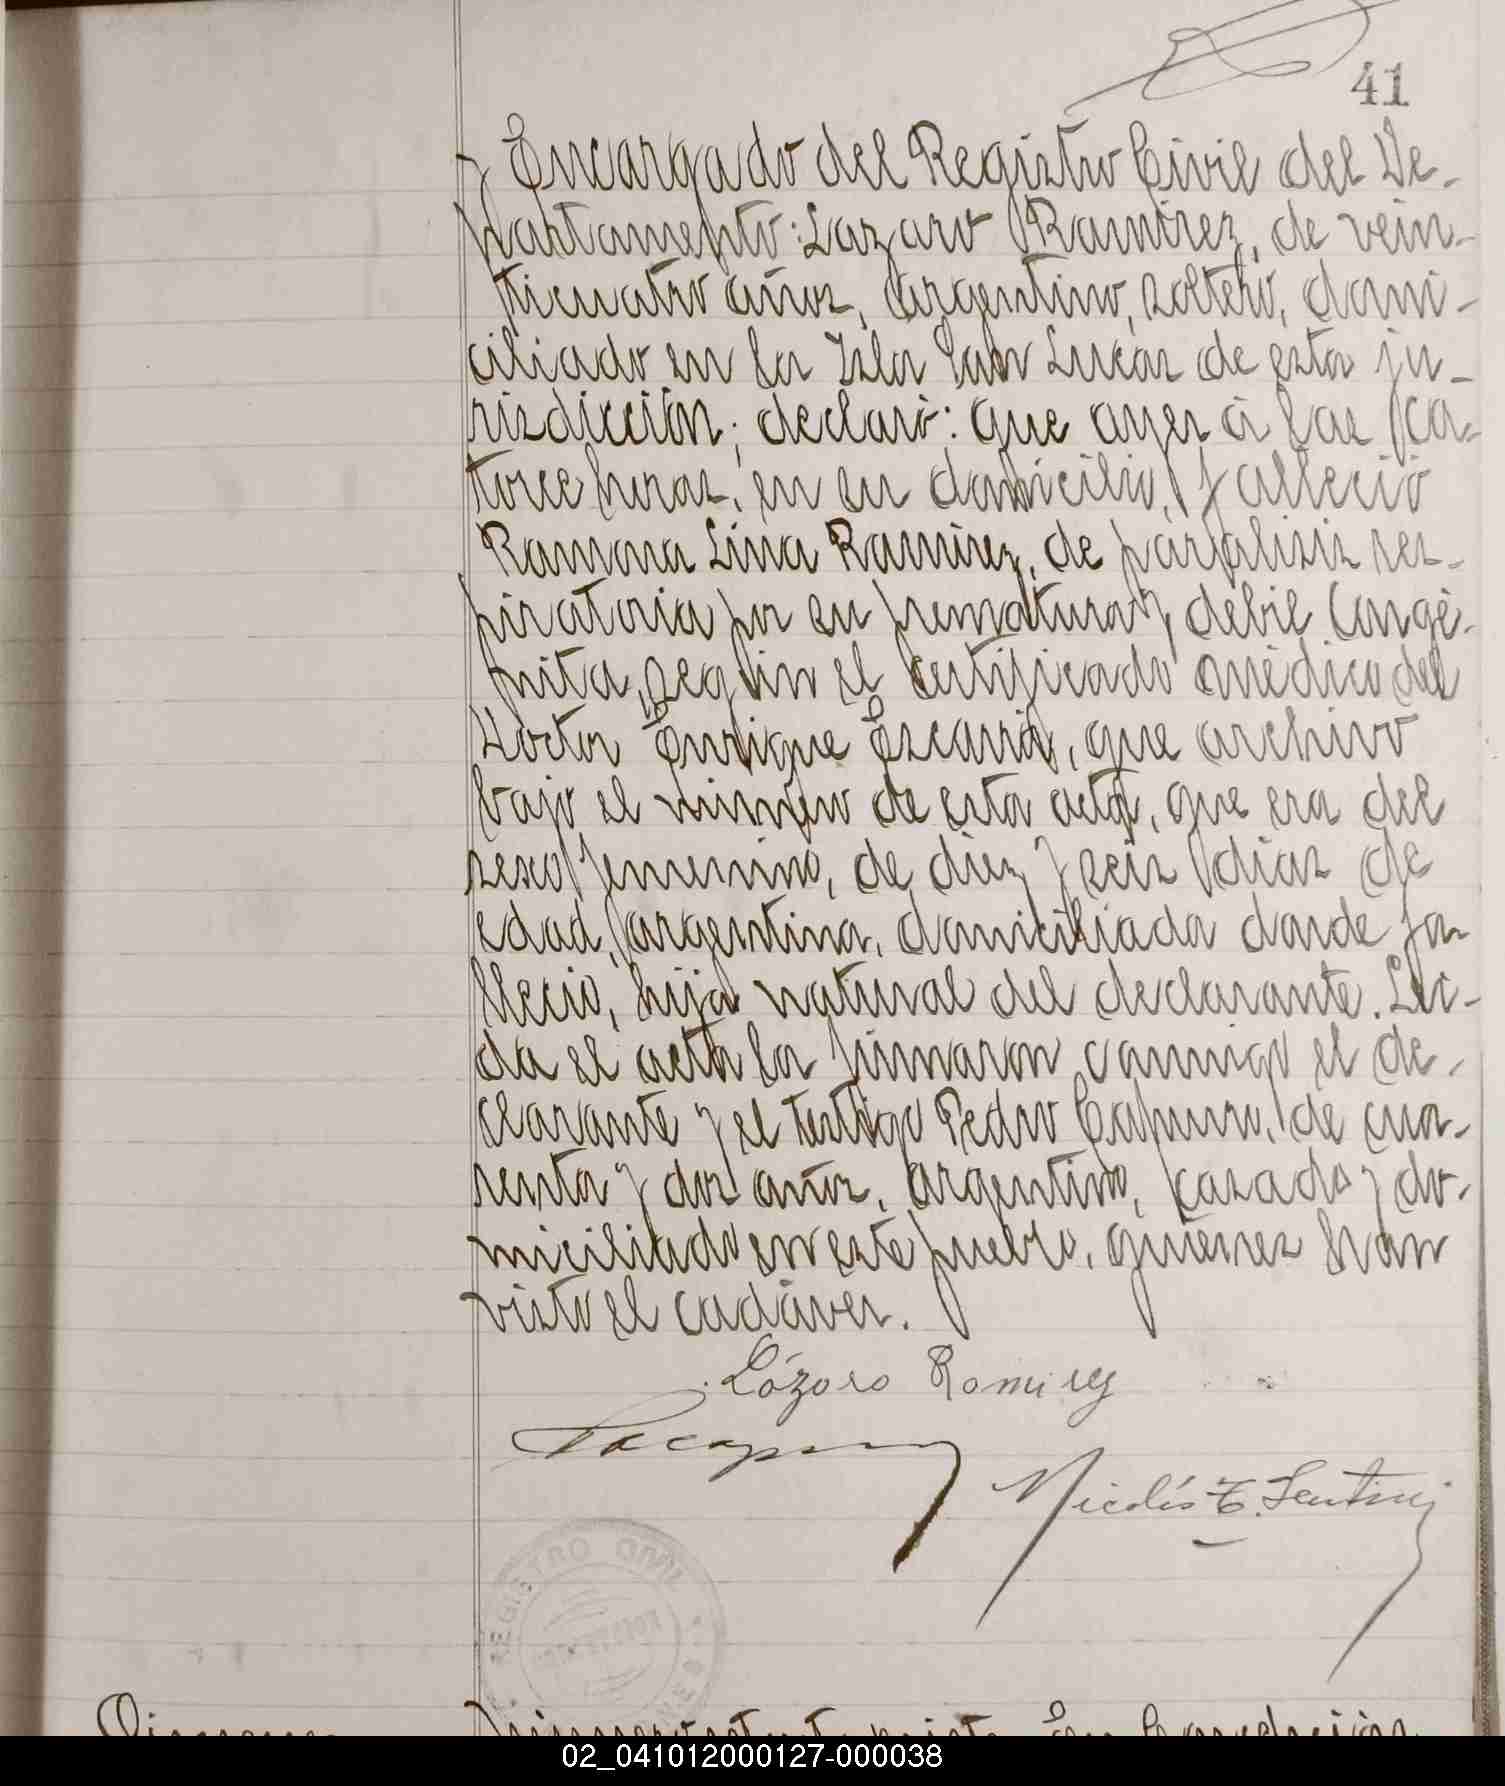 41
y Encargado del Registro Civil del De-
partamento: Lazaro Ramirez, de vein-
ticuatro años, argentino, soltero, domi-
ciliado en la Isla San Lucas de esta ju-
risdicción; declaró: que ayer á las ca-
torce horas, en su domicilio, falleció
Ramona Lina Ramirez, de parálisis res-
piratoria por su prematura y debil congé-
nita, según el certificado médico del
Doctor Enrique Escariá, que archivo
bajo el número de esta acta, que era del
sexo femenino, de diez y seis dias de
edad, argentina, domiciliada donde fa-
lleció, hija natural del declarante. Lei-
da el acta la firmaron conmigo el de-
clarante y el testigo Pedro Capurro, de cua-
renta y dos años, argentino, casado y do-
miciliado en este pueblo, quienes han
visto el cadáver.
Lázaro Ramirez
Nicolás T.
REGISTRO CIVIL
02_041012000127-000038